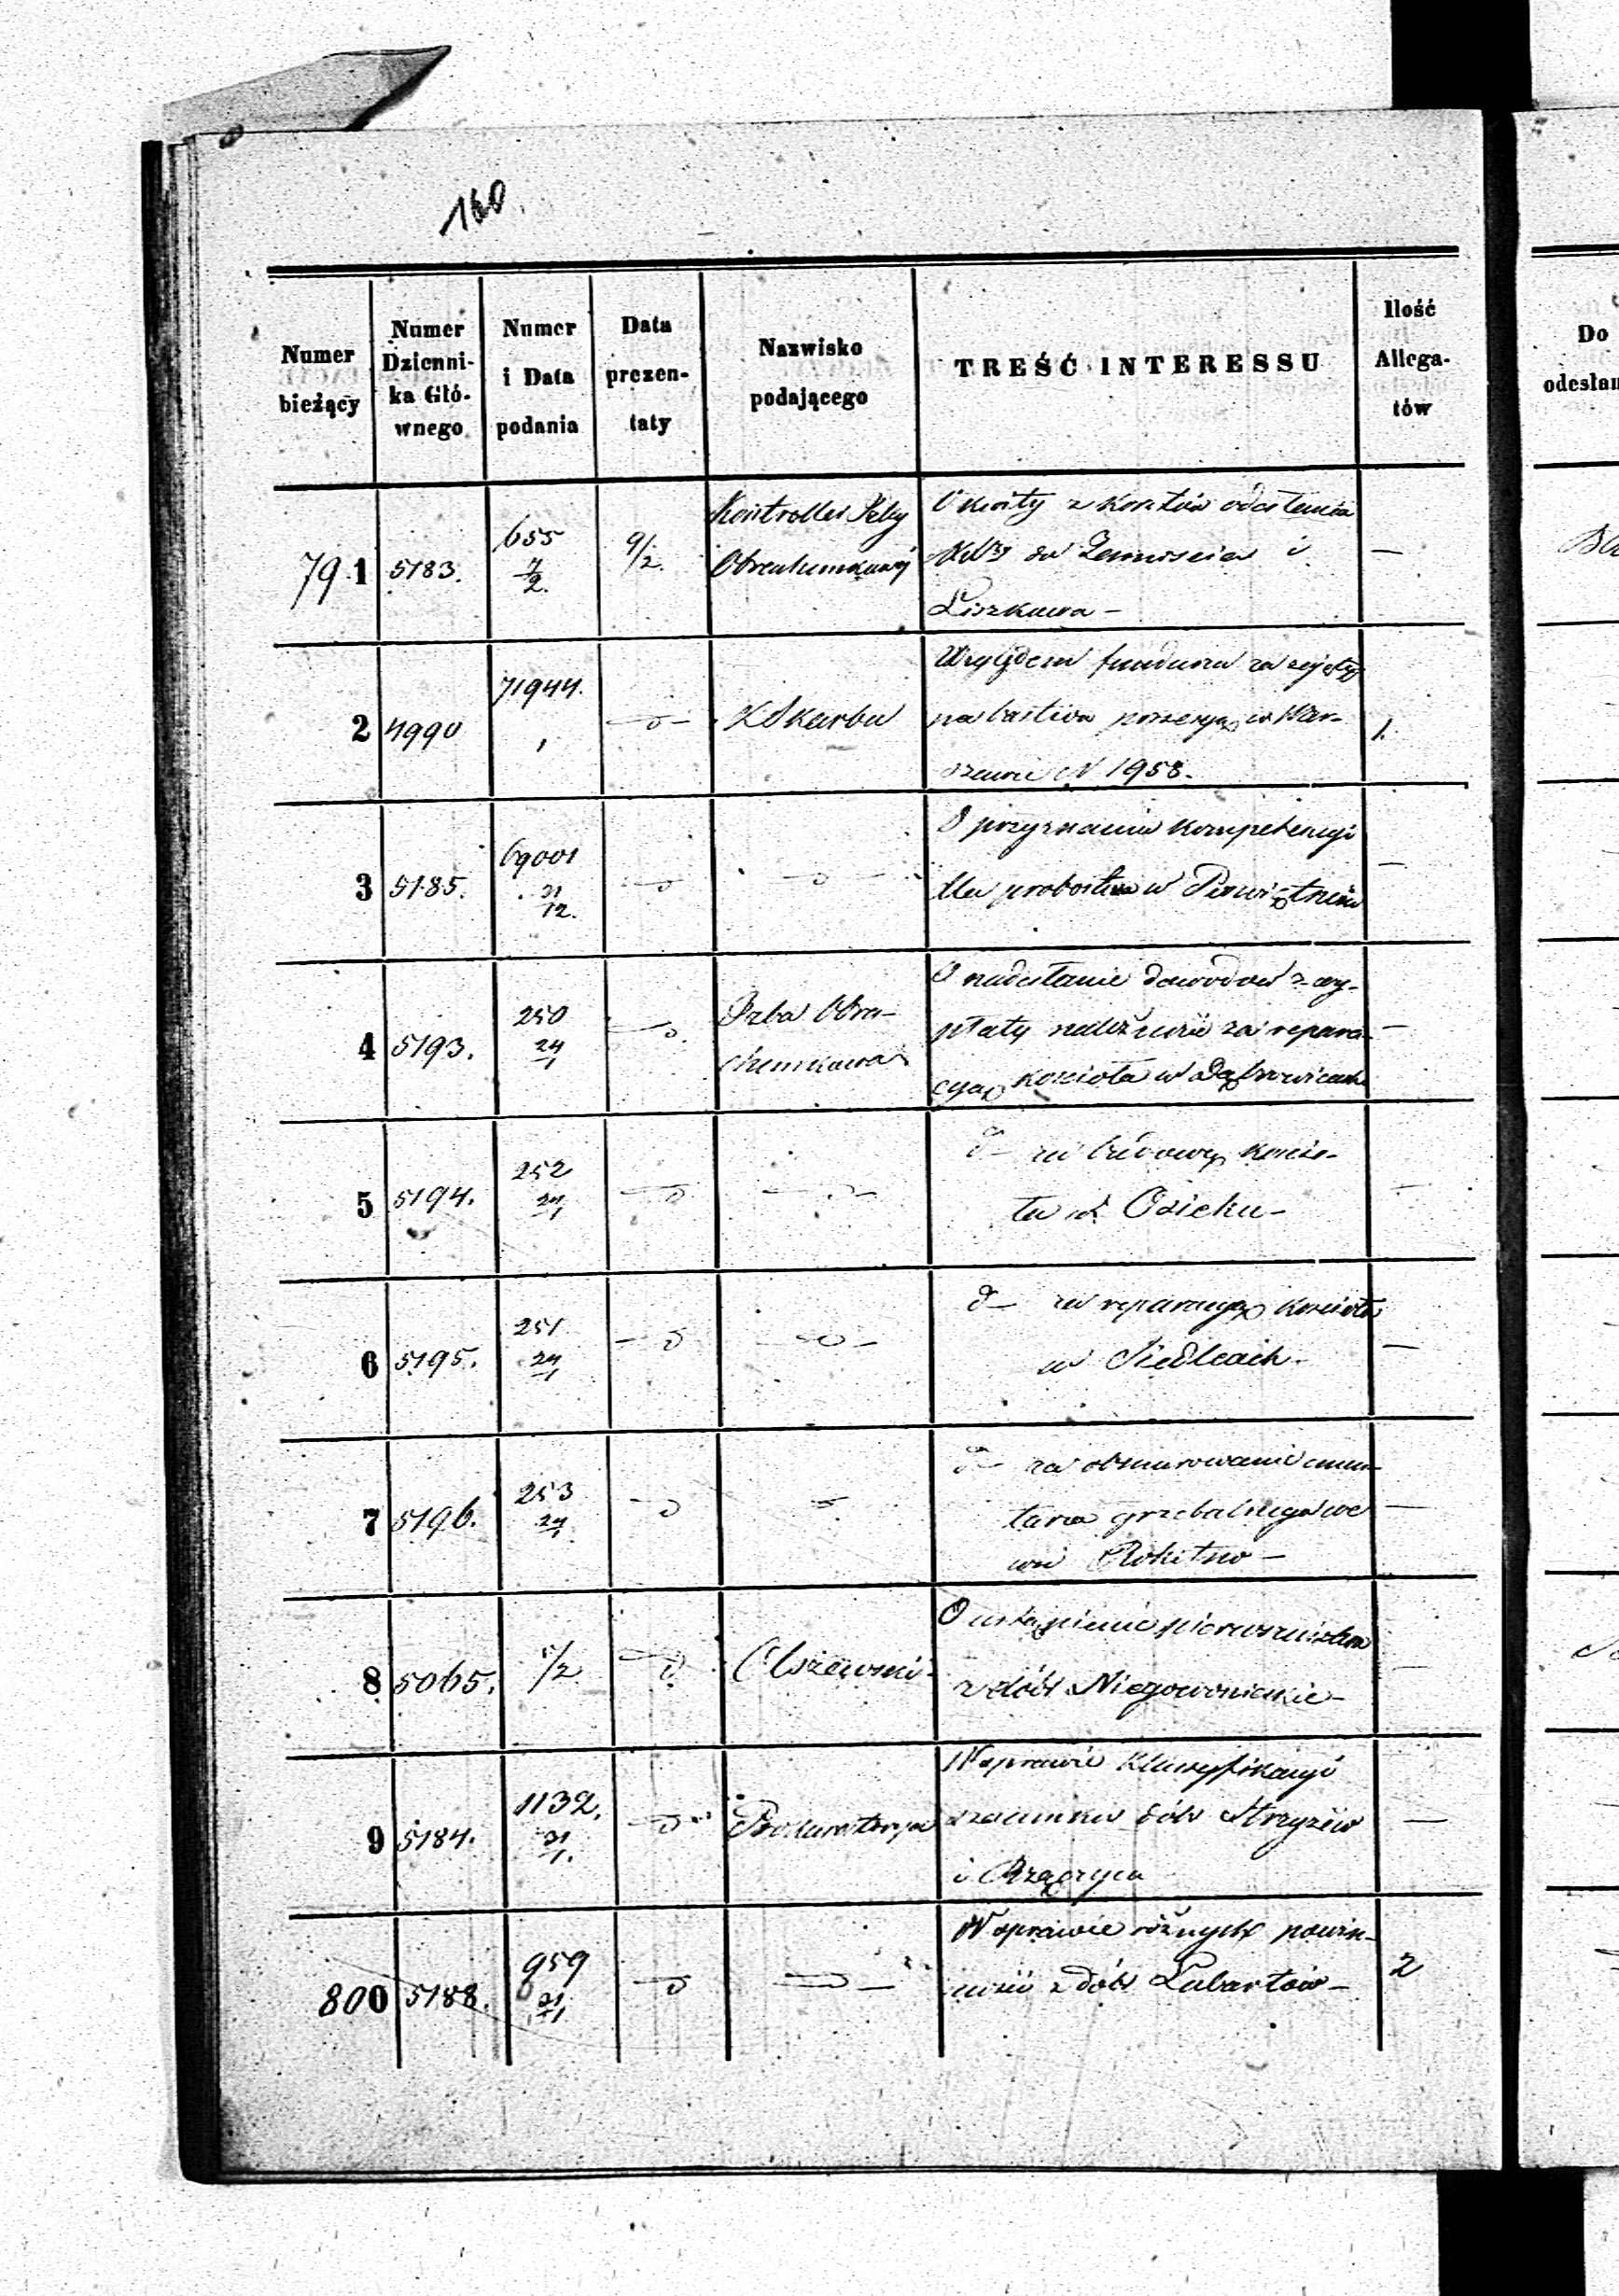 160.
Numer bieżący
Numer Dzienni-ka Głó-wnego
Numer i Data podania
Data prezen-taty
Nazwisko podającego
TREŚĆ INTERESSU
Ilość Allega-tów
Do
odesłan
791 5183. 655 9/2. Kontroller Izby O kwity z kosztów odesłania
do Zamościa i —
2.
Liszkawa —
2 4990 71944. —d— K Skarbu Względem funduszu za zajętą
posesyą w War- 1.
szawie N 1958.
3 5185. 69001 31/12. —d —d— O przyznanie kompetencyi —
dla probostwa w
4 5193. 250 24/1 —d. Izba Obra- O nadesłanie dowodów z wy-
chunkowa płaty należności za repara- —
cyą kościoła w Dąbrowicach
5 5194. 252 24/1 —d —d— d— za budowę kościo- —
ła w Osieku —
6 5195. 251 24/1 —d —d— d— za reparacyą kościoła —
w Siedlcach.
7 5196. 253 24/1 —d d— za obmurowanie cmen- —
tarza grzebalnego we
wsi Rokitno —
8 5065. 5/2 —d Olszewski O ustąpienie pierwszeństwa —
z dóbr Niegowonickie —
9 5184. 1132. 31/1. —d Prokuratorya W sprawie klassyfikacyi
szacunku dób Strzyżew —
i
800 5188. 959 31/1 —d —d— W sprawie różnych powin- 2
ności z dób Lubartów —